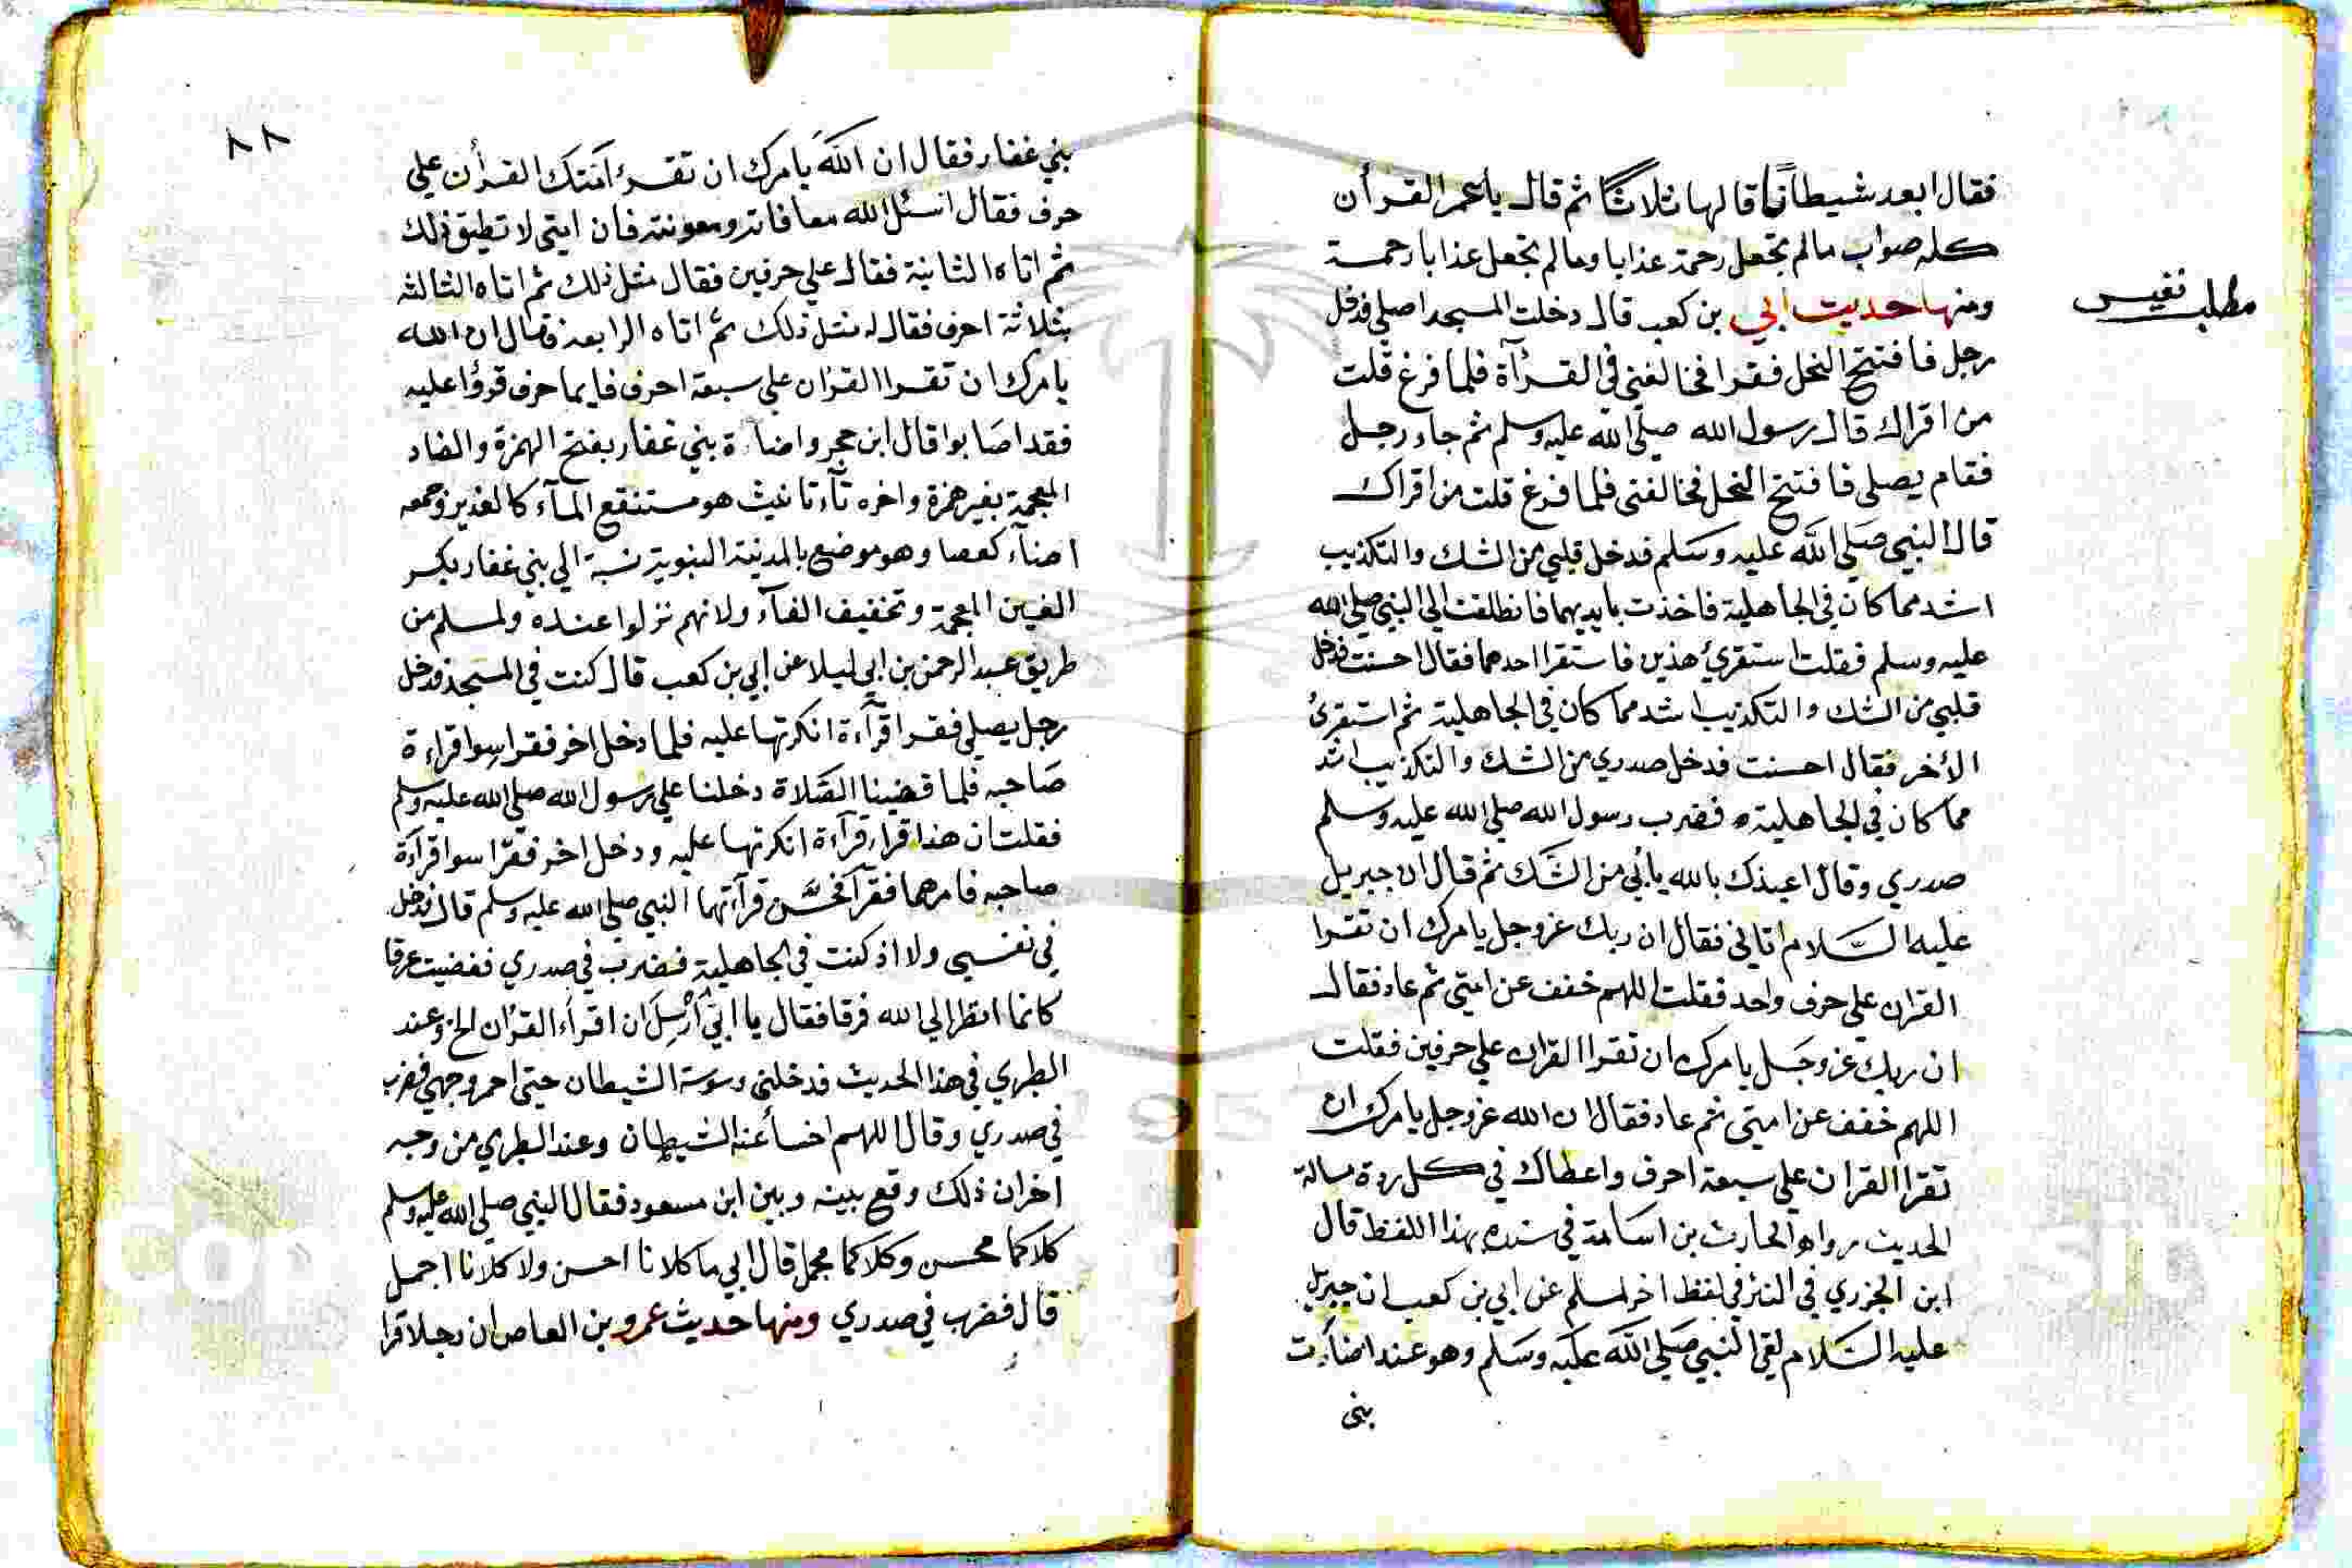 فقال ابعد شيطانا قالها ثلاثا ثم قال يا عمر القرأن
كله صواب مالم تجعل رحمة عذابا ومالم تجعل عذابا رحمة
ومنها حديث ابي بن كعب قال دخلت المسجد اصلي فدخل
مطلب نفيس
رجل فافتتح النحل فقرا فخالفني في القرآة فلما فرغ قلت
من اقراك قال رسول الله صلي الله عليه وسلم ثم جاء رجل
فقام يصلي فافتتح النحل فخالفني فلما فرغ قلت من اقراك
قال النبي صلي الله عليه وسلم فدخل قلبي من الشك والتكذيب
اشد مما كان في الجاهلية فاخذت بايديهما فانطلقت الي النبي صلي الله
عليه وسلم فقلت استقرئ هذين فاستقرا احدهما فقال احسنت فدخل
قلبي من الشك والتكذيب اشد مما كان في الجاهلية ثم استقرئ
الأخر فقال احسنت فدخل صدري من الشك والتكذيب اشد
مما كان في الجاهلية فضرب رسول الله صلي الله عليه وسلم
صدري وقال اعيذك بالله يا أبي من الشك ثم قال ان جبريل
عليه السلام اتاني فقال ان ربك عز وجل يامرك ان تقرا
القران علي حرف واحد فقلت اللهم خفف عن امتي ثم عاد فقال
ان ربك عز وجل يامرك ان تقرا القران علي حرفين فقلت
اللهم خفف عن امتي ثم عاد فقال ان الله عز وجل يامرك ان
تقرا القران علي سبعة احرف واعطاك في كل ردة مسالة
الحديث رواه الحارث بن اسامة في سنده بهذا اللفظ قال
ابن الجزري في النشر في لفظ اخر لمسلم عن ابي بن كعب ان جبريل
عليه السلام لقي النبي صلي الله عليه وسلم وهو عند اضأت
بني
٨٨
بني غفار فقال ان الله يامرك ان تقرء امتك القرأن علي
حرف فقال اسئل الله معافاته ومعونته فان امتي لا تطيق ذلك
ثم اتاه الثانية فقال علي حرفين فقال مثل ذلك ثم اتاه الثالثه
بثلاثة احرف فقال له مثل ذلك ثم اتاه الرابعة فقال ان الله
يامرك ان تقرا القران علي سبعة احرف فايما حرف قرؤا عليه
فقد اصابوا قال ابن حجر واضاءة بني غفار بفتح الهمزة والضاد
المعجمة بغير همزة واخره تآء تانيث هو مستنقع المآء كالغدير وجمعه
اضآء كعصا وهو موضع بالمدينة النبوية نسبة الي بني غفار بكسر
الغين المعجمة وتخفيف الفآء ولانهم نزلوا عنده ولمسلم من
طريق عبد الرحمن بن ابي ليلا عن ابي بن كعب قال كنت في المسجد فدخل
رجل يصلي فقرا قرآءة انكرتها عليه فلما دخل اخر فقرا سوا قراءة
صاحبه فلما قضينا الصلاة دخلنا علي رسول الله صلي الله عليه وسلم
فقلت ان هذا قراء قرآءة انكرتها عليه ودخل اخر فقرا سوا قرآءة
صاحبه فامرهما فقرآ فحسن قرآءتهما النبي صلي الله عليه وسلم قال فدخل
في نفسي ولا اذ كنت في الجاهلية فضرب في صدري ففضيت عرقا
كانما انظر الي الله فرقا فقال يا ابي أرسل ان اقرأء القران الخ وعند
الطبري في هذا الحديث فدخلني وسوسة الشيطان حتي احمر وجهي فضرب
في صدري وقال اللهم اخسأ عنه الشيطان وعند الطبري من وجه
اخر ان ذلك وقع بينه وبين ابن مسعود فقال النبي صلي الله عليه وسلم
كلاكما محسن وكلاكما مجمل قال ابي ما كلانا احسن ولا كلانا اجمل
قال فضرب في صدري ومنها حديث عمرو بن العاص ان رجلا قرا